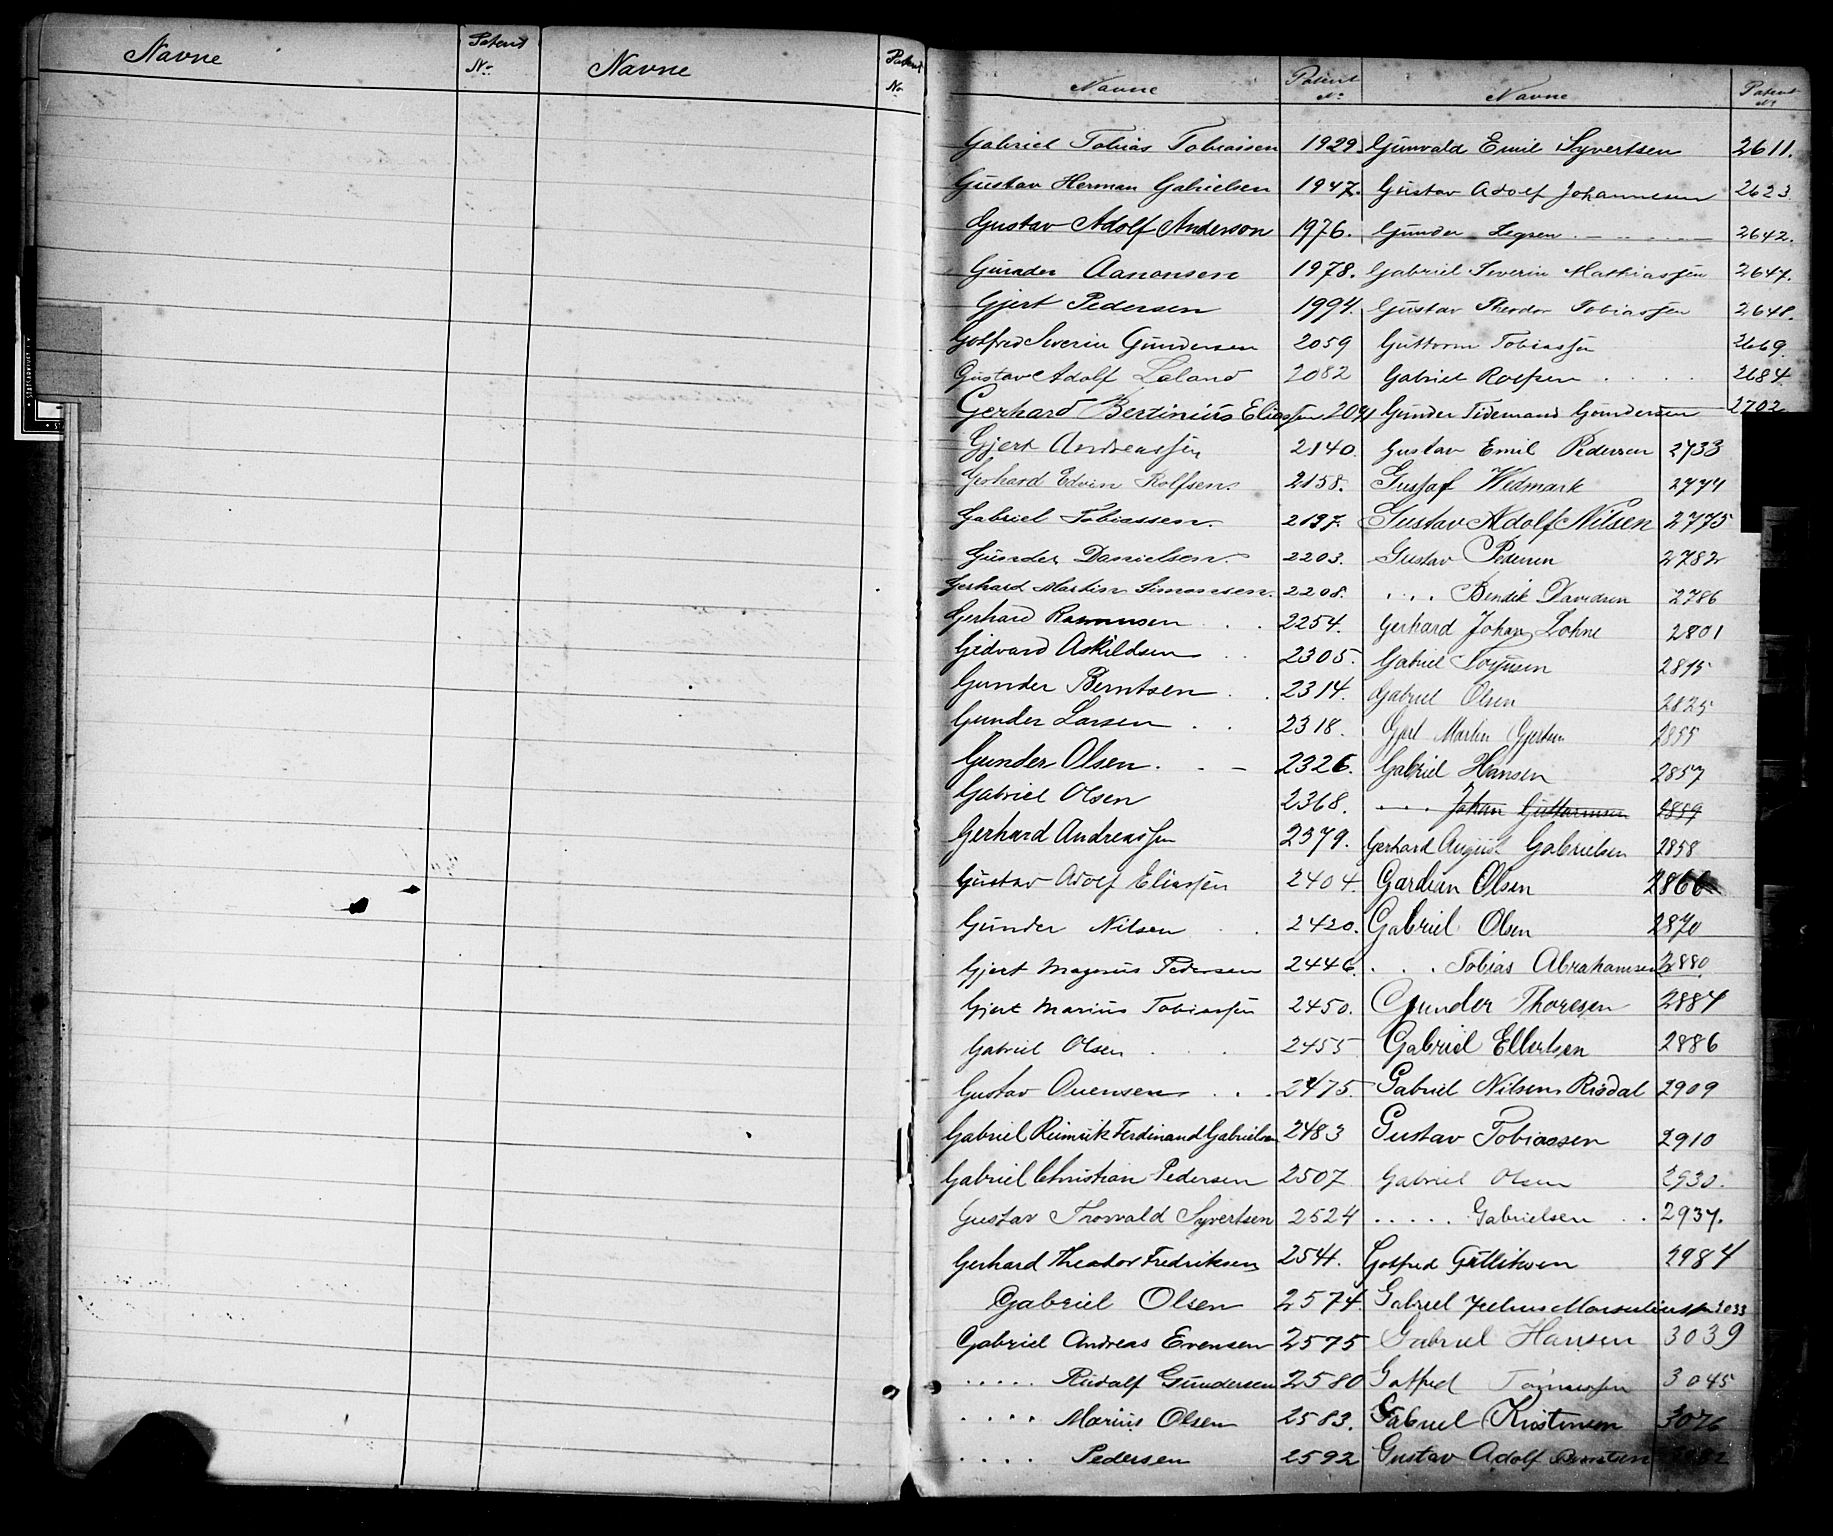 Navne Patent No Navne Patent No
Navne Patent No Navne Patent No
Gabriel Tobias Tobiassen 1929. Gunvald Emil Syvertsen 2611.
Gustav Herman Gabrielsen 1947. Gustav Adolf Johannesen 2623.
Gustav Adolf Anderson 1976. Gunder 2642.
Gunder Aanonsen 1978. Gabriel Severin Mathiassen 2647.
Gjert Pedersen 1994. Gustav Theodor Tobiassen 2648.
Gotfred Severin Gundersen 2059 Guttorm Tobiassen 2669.
Gustav Adolf Laland 2082 Gabriel Roefsen 2684.
Gerhard Bertinius Eliassen 2091 Gunder Tidemand Gundersen 2702
Gjert Andreassen 2140. Gustav Emil Pedersen 2733
Gerhard Edvin Rolfsen. 2158. Gustaf Wedmark 2774
Gabriel Tobiassen. 2197. Gustav Adolf Nilsen 2775
Gunder Danielsen. 2203. Gustav Pedersen 2782
Gerhard Martin Simonsen. 2208. . . . Bendik Davidsen 2786
Gerhard Rasmusen . . 2254. Gerhard Johan Lohne 2801
Gidvard Askildsen . . 2305. Gabriel 2815
Gunder Berntsen . . 2314. Gabriel Olsen 2825
Gunder Larsen . . 2318. Gjert Martin Gjertsen 2855
Gunder Olsen. . - 2326. Gabriel Hansen 2857
Gabriel Olsen 2368. . . . . Johan Guttormsen 2859
Gerhard Andreassen 2379. Gerhard August Gabrielsen 2858
Gustav Adolf Eliassen 2404. Gardian Olsen 2866
Gunder Nilsen . . 2420. Gabriel Olsen 2870
Gjert Magnus Pedersen 2446. . . . Tobias Abrahamsen 2880
Gjert Marius Tobiassen 2450. Gunder Thoresen 2884
Gabriel Olsen . . 2455 Gabriel Ellertsen 2886
Gustav Ouensen . . . 2475. Gabriel Nilsen Risdal 2909
Gabriel Reinrik Ferdinand Gabrielsen 2483 Gustav Tobiassen 2910
Gabriel Christian Pedersen 2507 Gabriel Olsen 2930.
Gustav Thorvald Syvertsen 2524 . . . . . Gabrielsen . . 2937.
Gerhard Theodor Fredriksen 2541. Gotfred Gulliksen 2984
Gabriel Olsen 2574. Gabriel Julius 3033
Gabriel Andreas Evensen 2575 Gabriel Hansen 3039
. . . . . Rudolf Gundersen 2580 Gotfred 3045
. . . . Marius Olsen 2583. Gabriel Kristensen 3076
. . . . Pedersen 2592 Gustav Adolf Berntsen